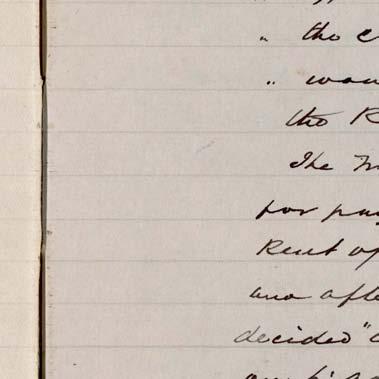 " the c
" wou
the R
The M
for pay
Rent of
and afte
decided "